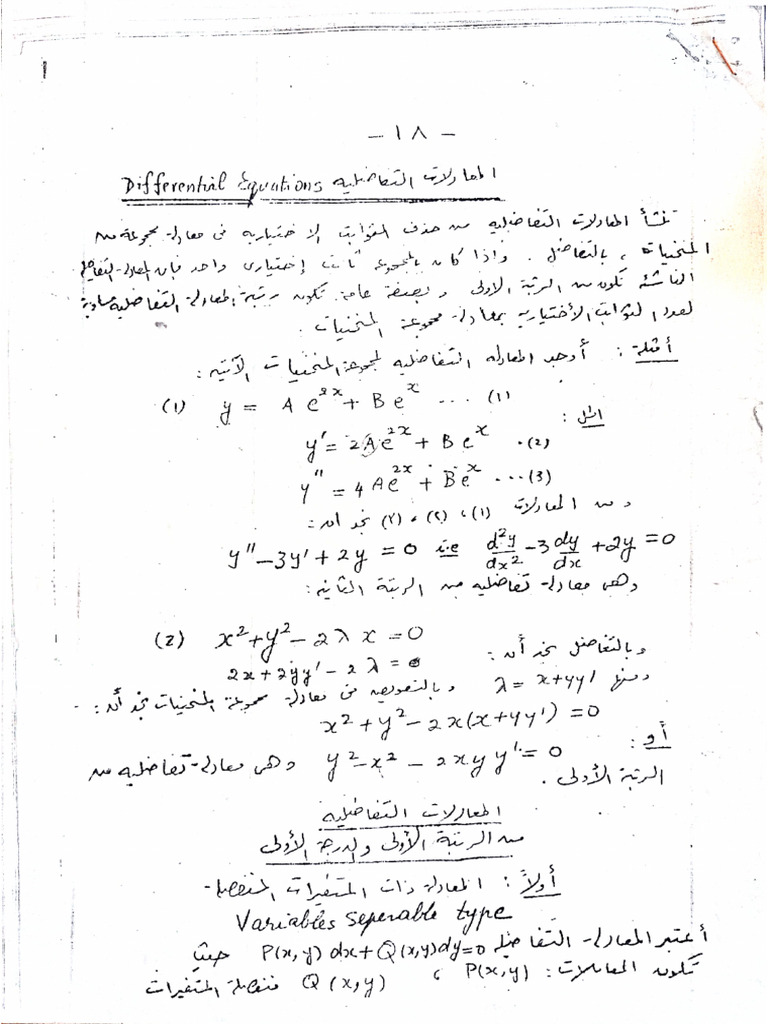 - ١٨ -
المعادلات التفاضليه Differential Equations
تنشأ المعادلات التفاضليه من حذف الثوابت الاختياريه فى معادلة مجموعة من
المنحنيات ، بالتفاضل . وإذا كان بالمجموعه ثابت إختيارى واحد فإن المعادلة التفاضلية
الناشئه تكون من الرتبة الأولى وبصفة عامة تكون رتبة المعادلة التفاضليه مساوية
لعدد الثوابت الأختياريه بمعادلة مجموعة المنحنيات .
أمثلة : أوجد المعادله التفاضليه لمجموعة المنحنيات الآتيه :
(1) y = A e^{2x} + B e^{x} ... (1)
الحل :
y' = 2A e^{2x} + B e^{x} .(2)
y'' = 4A e^{2x} + B e^{x} ...(3)
ومن المعادلات (١) ، (٢) ، (٣) نجد أن :
y'' - 3y' + 2y = 0 i.e d²y/dx² - 3 dy/dx + 2y = 0
وهى معادلة تفاضليه من الرتبة الثانيه :
(2) x² + y² - 2λx = 0
وبالتفاضل نجد أن : 2x + 2yy' - 2λ = 0
ومنها λ = x + yy' وبالتعويض فى معادلة مجموعة المنحنيات نجد أن :
x² + y² - 2x(x + yy') = 0
أو : y² - x² - 2xyy' = 0 وهى معادلة تفاضليه من
الرتبة الأولى .
المعادلات التفاضليه
من الرتبة الأولى والدرجة الأولى
أولاً : المعادلة ذات المتغيرات المنفصلة
Variables seperable type
أعتبر المعادلة التفاضليه P(x,y)dx + Q(x,y)dy = 0 حيث
تكون المعاملات : P(x,y) ، Q(x,y) منفصلة المتغيرات